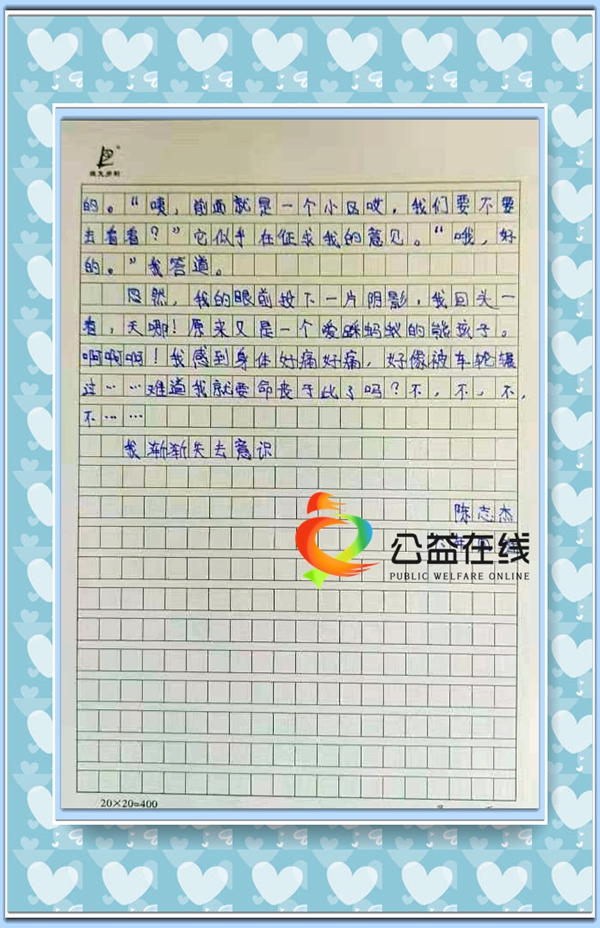 的。“咦，前面就是一个小区哎，我们要不要
去看看？”它似乎在征求我的意见。“哦，好
的。”我答道。
忽然，我的眼前投下一片阴影，我回头一
看，天哪！原来又是一个爱踩蚂蚁的熊孩子。
啊啊啊！我感到身体好痛好痛，好像被车轮辗
过……难道我就要命丧于此了吗？不，不，不，
不……
我渐渐失去意识
陈志杰
公益在线
PUBLIC WELFARE ONLINE
20×20=400